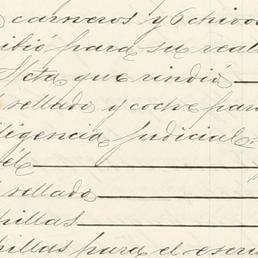 carneros y 6 chivos
ibió para su real
Acta que rindió
sellado y coche para
ligencia Judicial
sellado
pillas
pillas para el escri